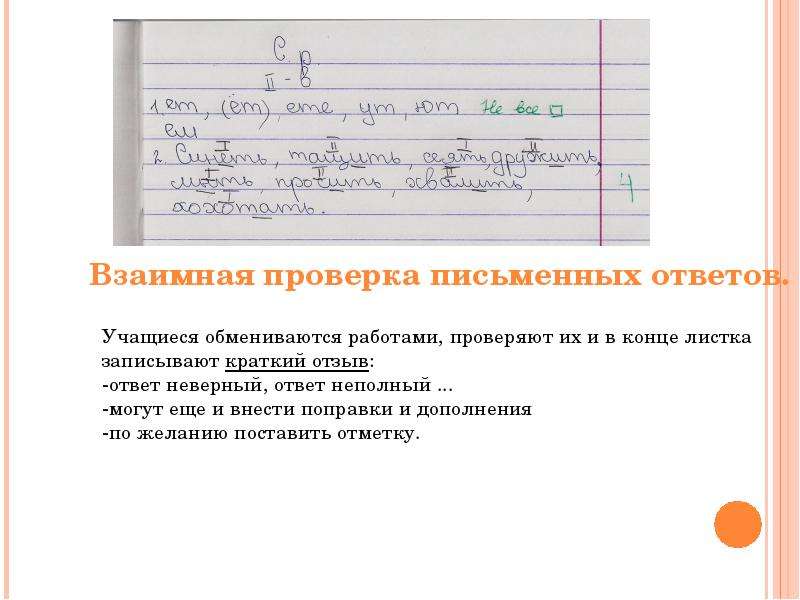 С. р.
II - в
1. ет, (ёт), ете, ут, ют Не все
ем
I II I II
2. Синеть, тащить, сеять, дружить,
I II II
мыть, просить, хвалить,
I
хохотать. 4
Взаимная проверка письменных ответов.
Учащиеся обмениваются работами, проверяют их и в конце листка
записывают краткий отзыв:
-ответ неверный, ответ неполный ...
-могут еще и внести поправки и дополнения
-по желанию поставить отметку.